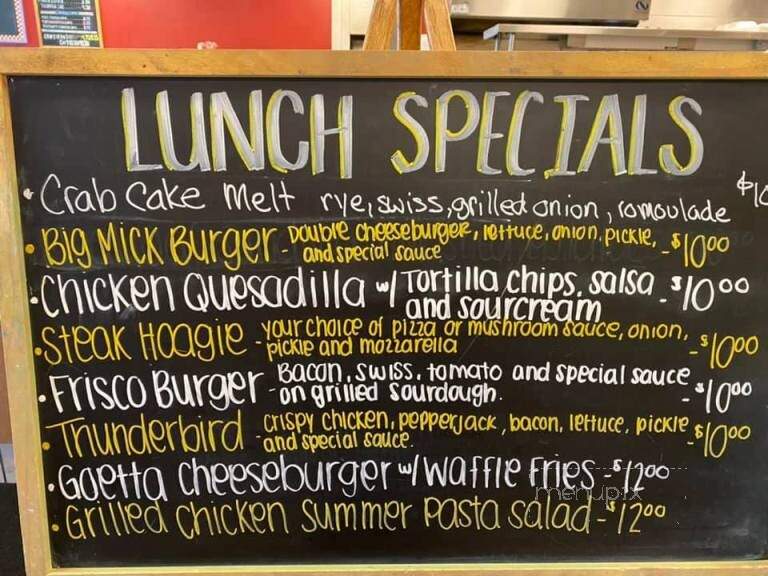 LUNCH SPECIALS
• Crab Cake Melt rye, swiss, grilled onion, romoulade $10
• Big Mick Burger - Double cheeseburger, lettuce, onion, pickle, and special sauce - $10 00
• Chicken Quesadilla w/ Tortilla chips, salsa and sourcream - $10 00
• Steak Hoagie - your choice of pizza or mushroom sauce, onion, pickle and mozzarella - $10 00
• Frisco Burger - Bacon, swiss, tomato and special sauce on grilled sourdough. - $10 00
• Thunderbird - crispy chicken, pepperjack, bacon, lettuce, pickle and special sauce. - $10 00
• Goetta cheeseburger w/ Waffle Fries - $12 00
• Grilled chicken summer pasta salad - $12 00
menupix